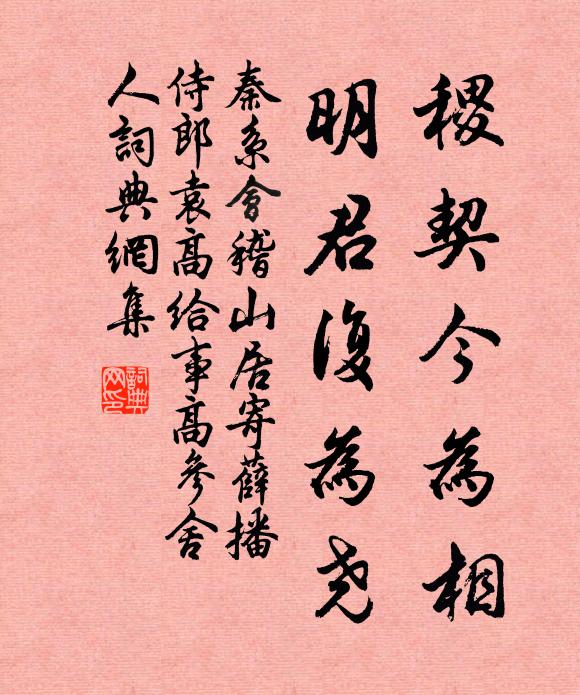 稷契今為相
明君復為堯
秦系會稽山居寄薛播
侍郎袁高給事高參舍
人詞典網集
詞典网印